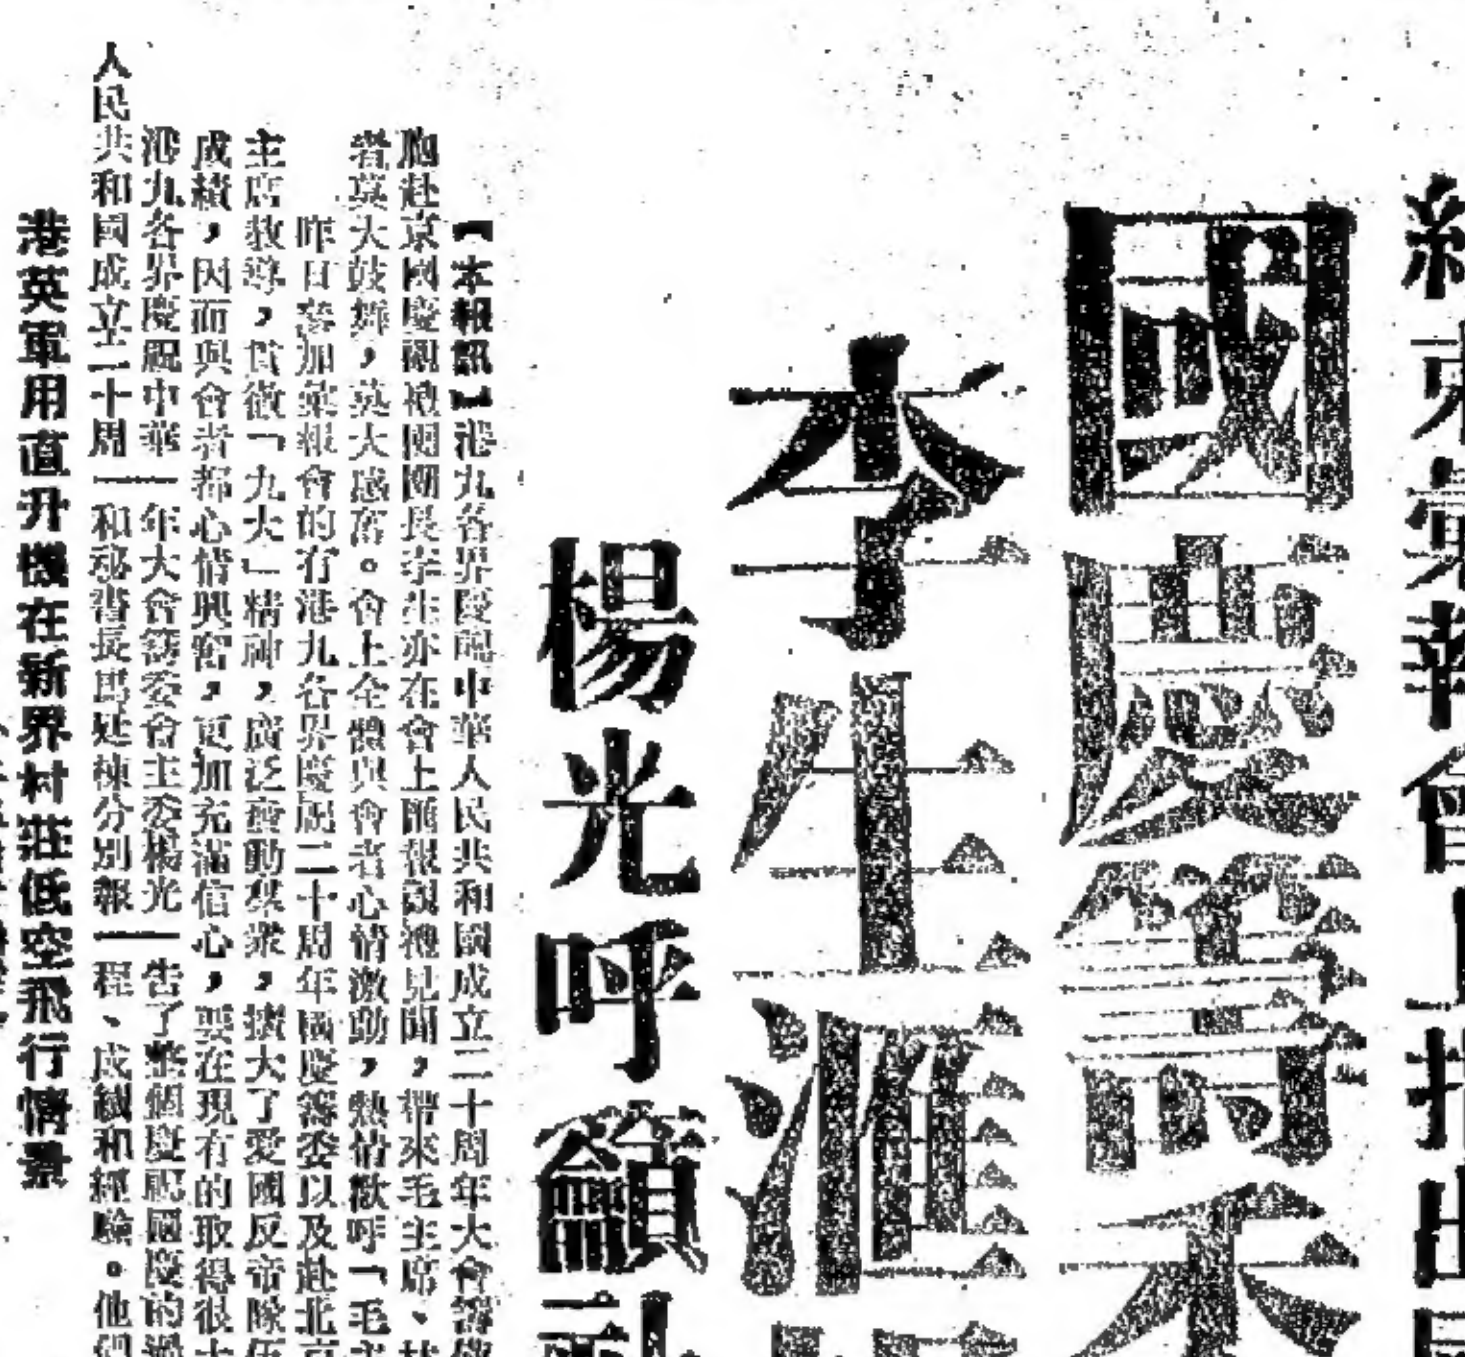 東彙報會上指出
國慶籌委
李生滙
楊光呼籲
【本報訊】港九各界慶祝中華人民共和國成立二十周年大會籌備
胞赴京國慶觀禮團團長李生亦在會上匯報觀禮見聞，帶來毛主席、林
者莫大鼓舞，莫大感奮。會上全體與會者心情激動，熱情歡呼「毛主
昨日參加彙報會的有港九各界慶祝二十周年國慶籌委以及赴北京
主席教導，貫徹「九大」精神，廣泛發動羣衆，擴大了愛國反帝隊伍
成績，因而與會者都心情興奮，更加充滿信心，要在現有的取得很大
港九各界慶祝中華
人民共和國成立二十周
年大會籌委會主委楊光
和秘書長馬廷棟分別報
告了整個慶祝國慶的過
程、成績和經驗。他們
港英軍用直升機在新界村莊低空飛行情景